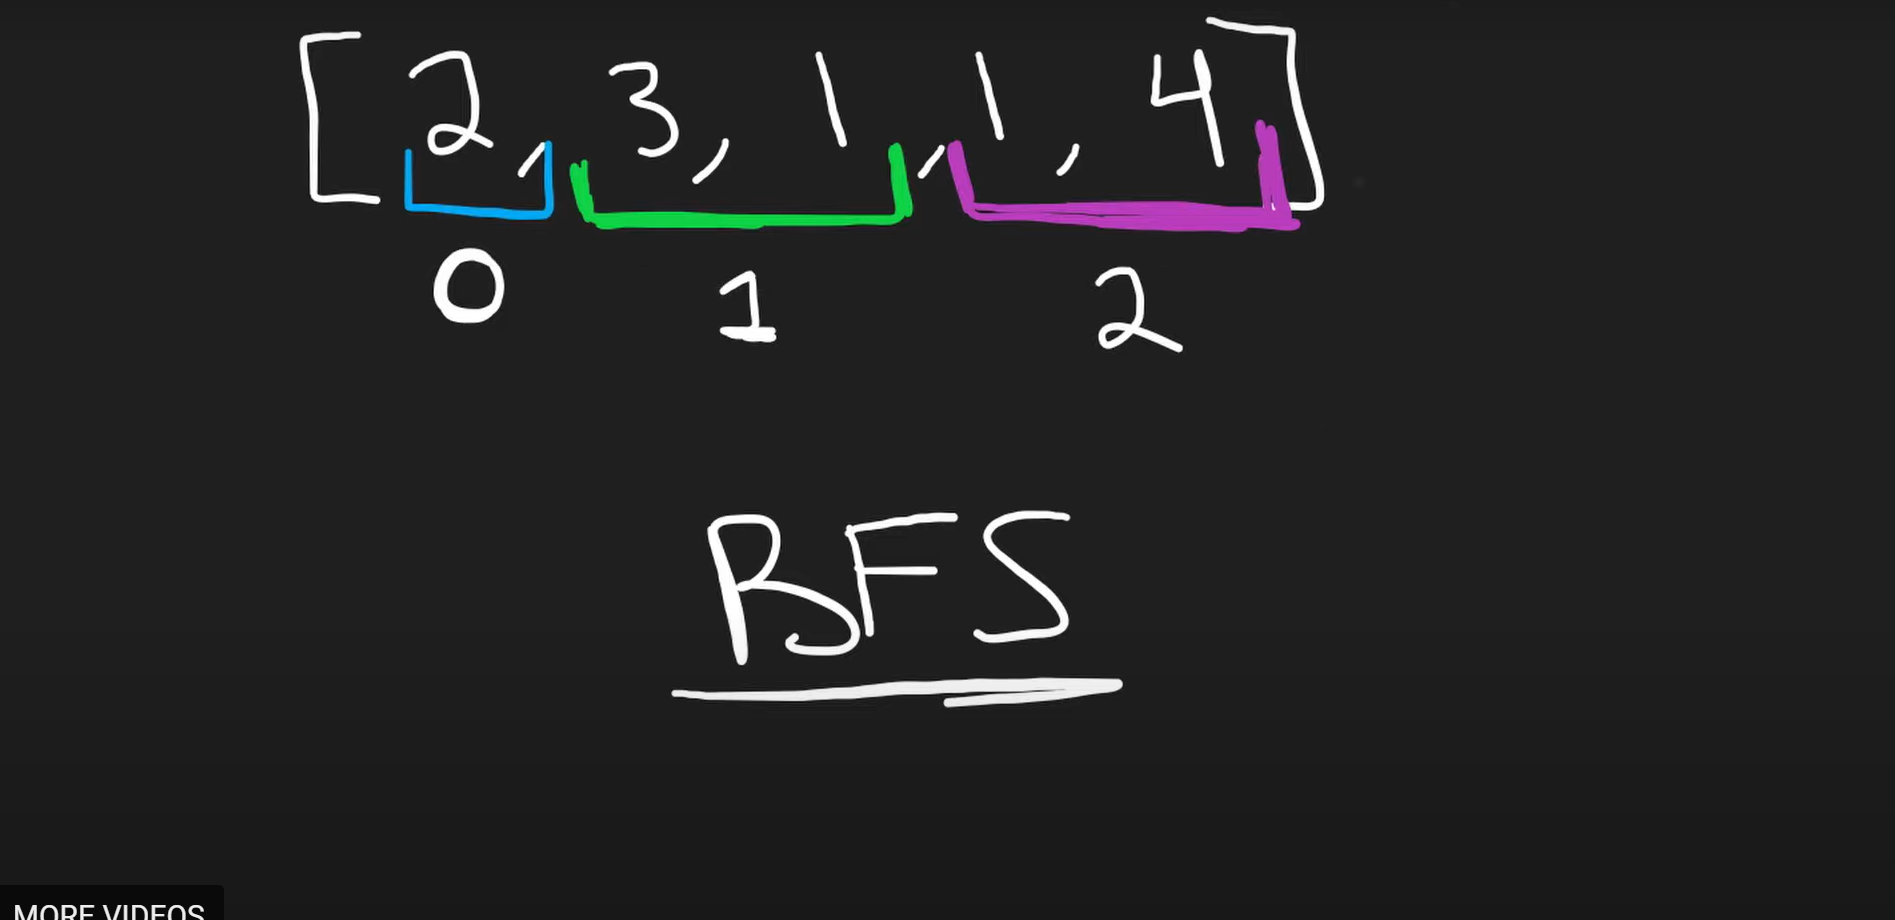 [2, 3, 1, 1, 4]
0 1 2
BFS
MORE VIDEOS